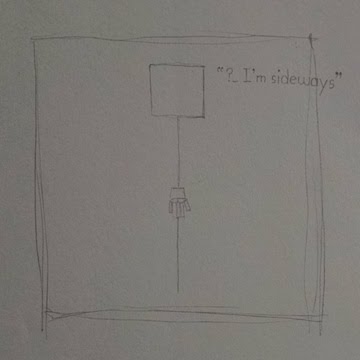 "?_ I'm sideways"